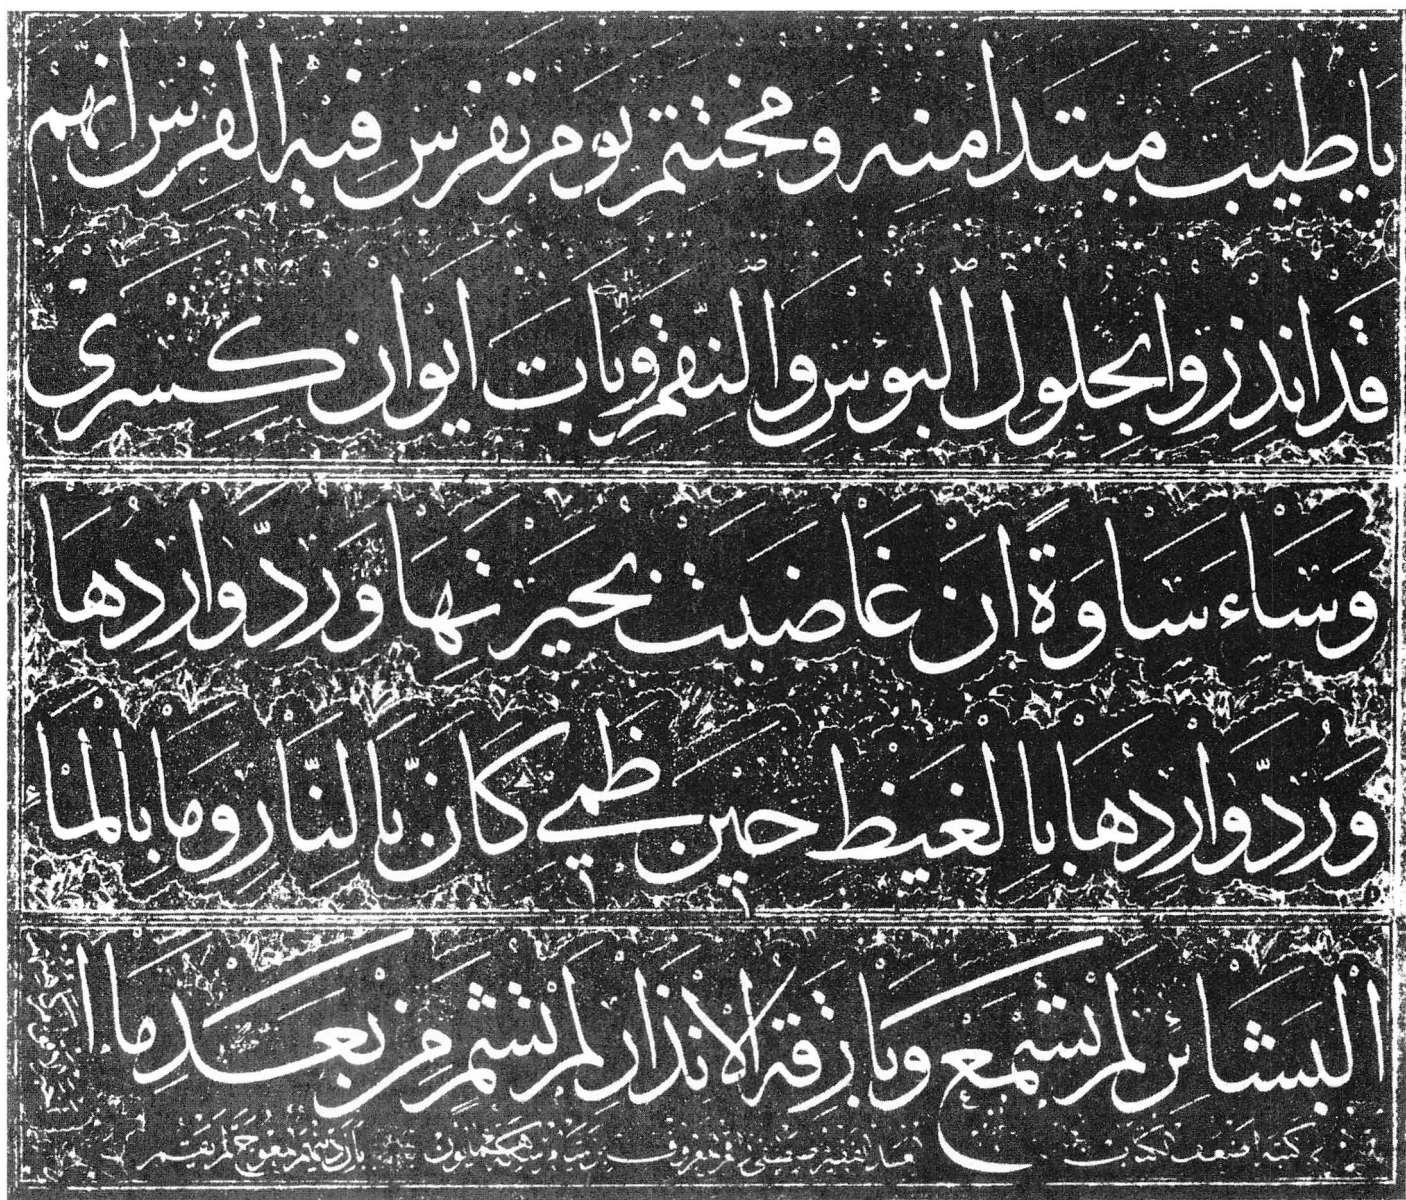 ياطيب مبتدا منه ومختتم يوم تفرس فيه الفرس انهم
قد انذروا بحلول البؤس والنقم وبات ايوان كسرى
وَسَاءَ سَاوَةَ اَنْ غَاضَتْ بُحَيْرَتُهَا وَرُدَّ وَارِدُهَا
وَرُدَّ وَارِدُهَا بالغيظ حين ظمي كان بالنار ما بالما
البشائر لم تسمع وبارقة الانذار لم تشم من بعد ما ا
كتبه اضعف الكتاب